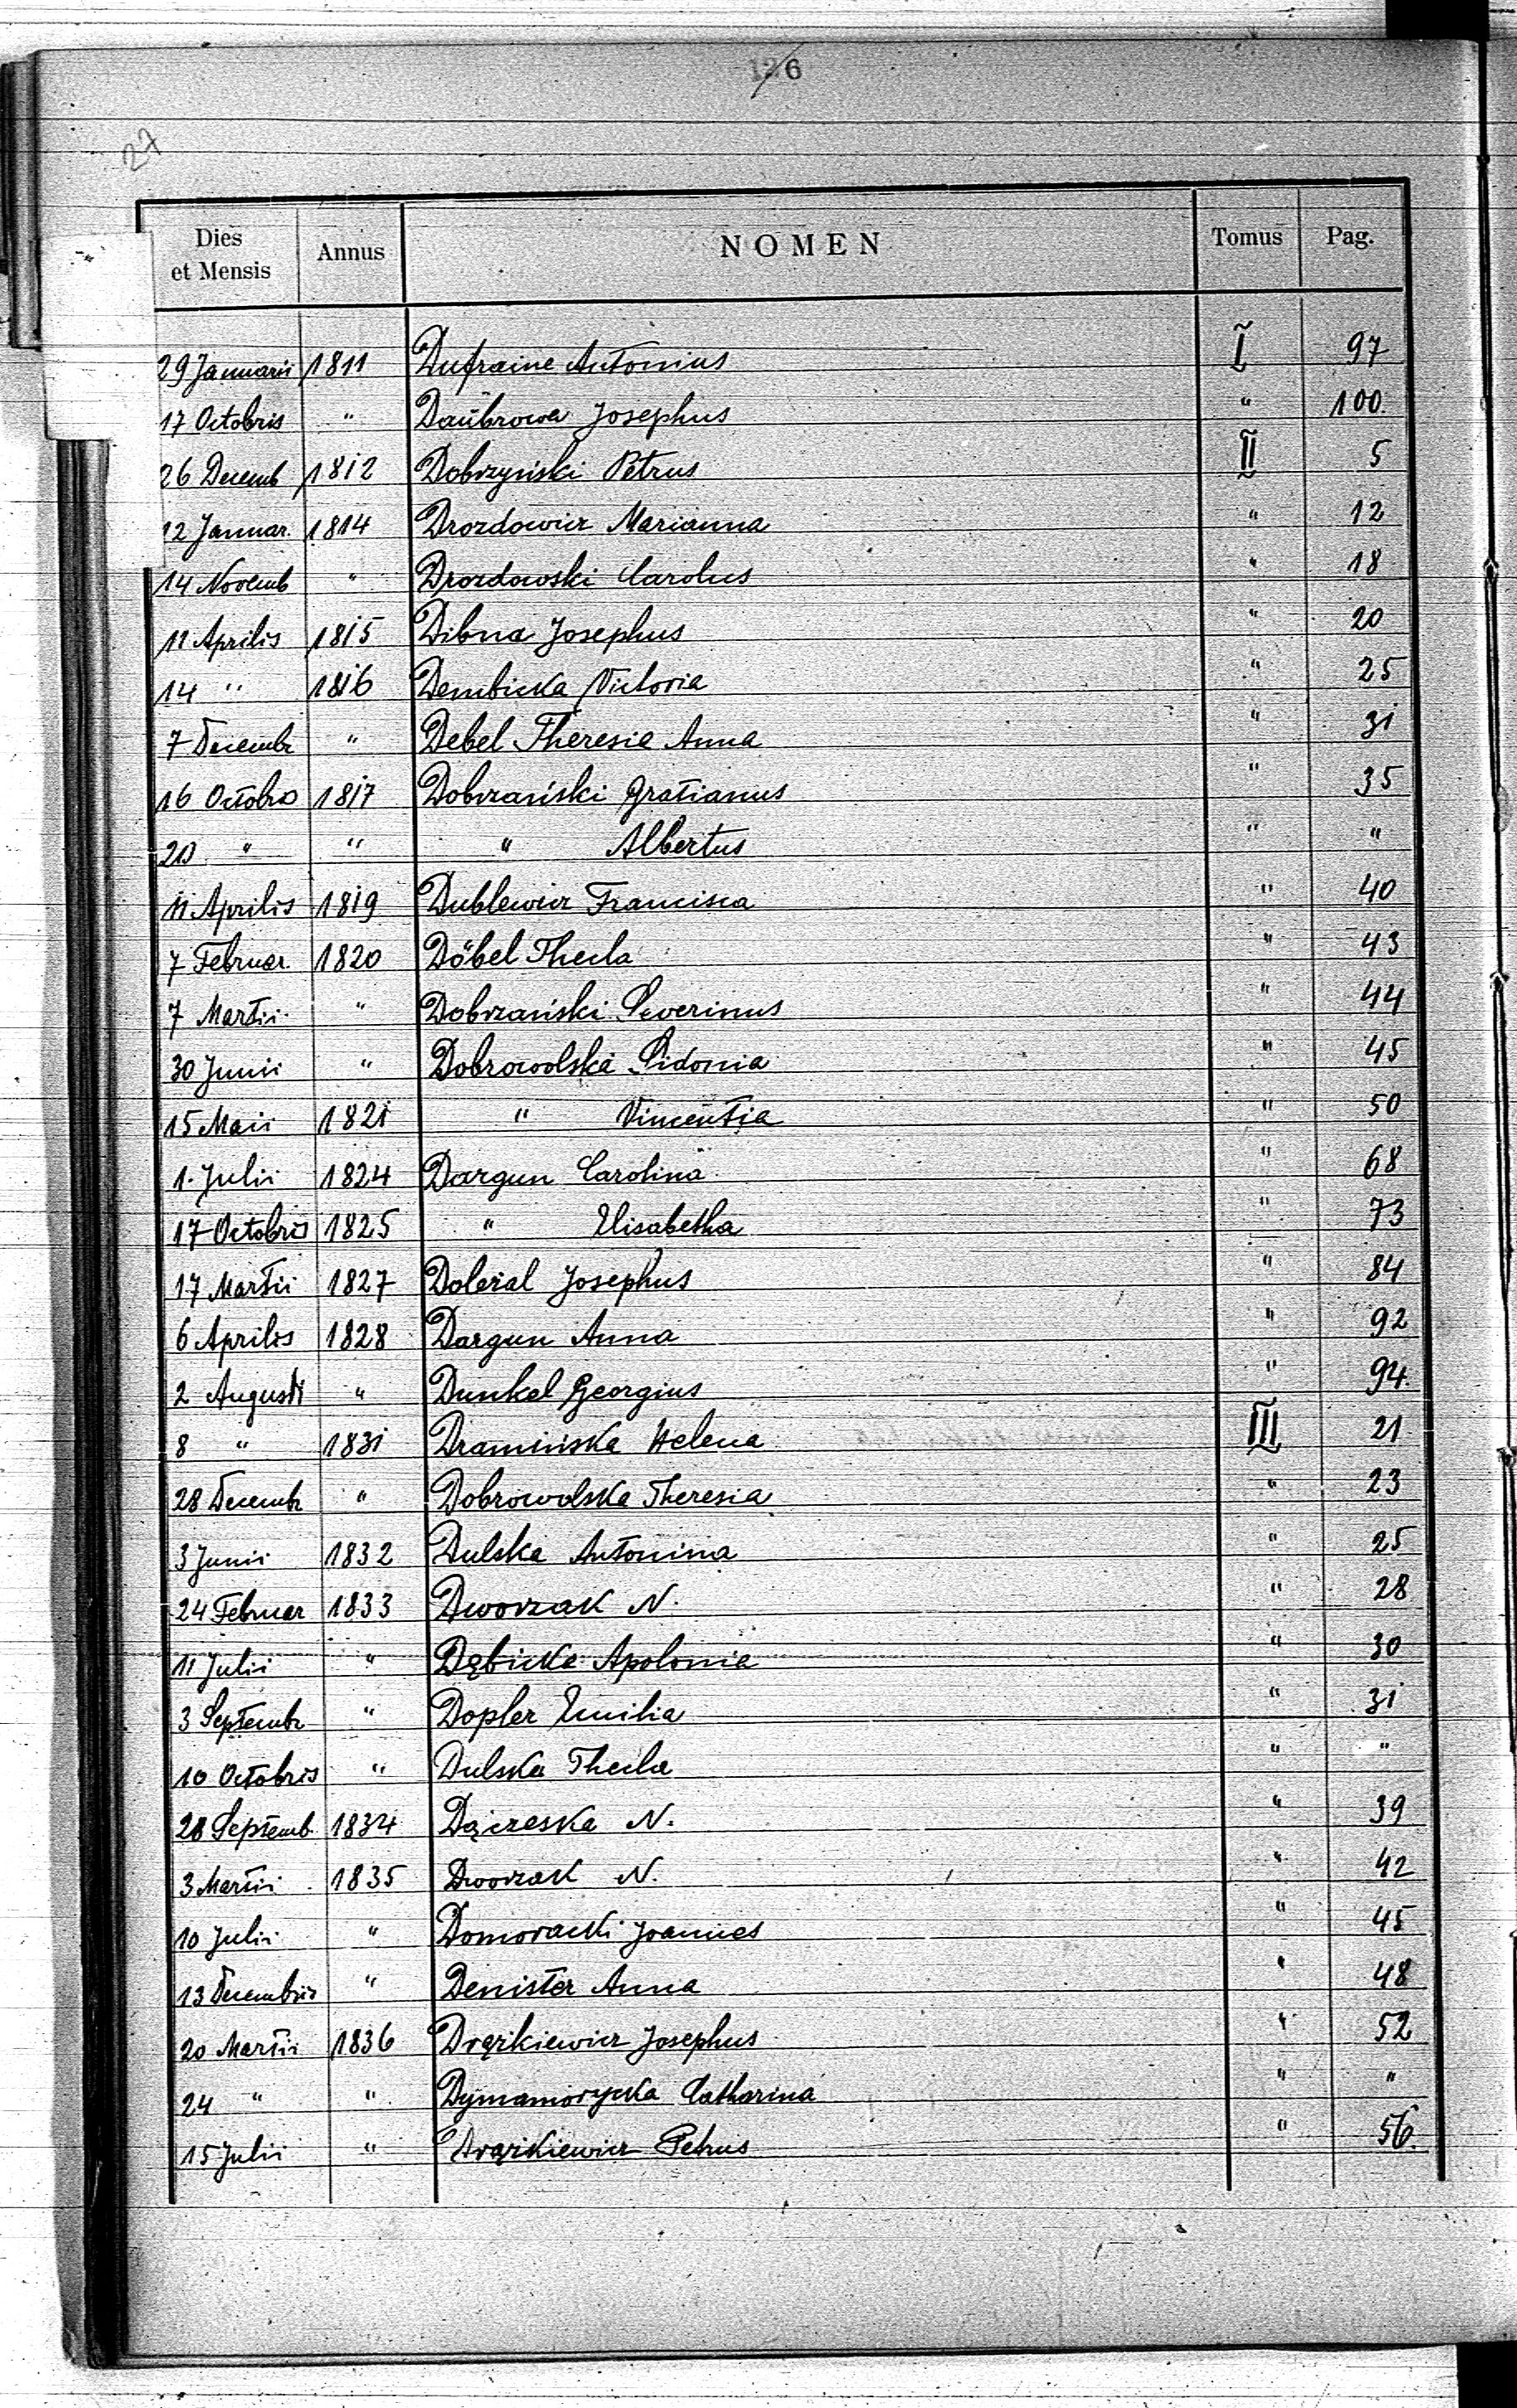 126
27
Dies et Mensis Annus NOMEN Tomus Pag.
29 Januarii 1811 Dufraine Antonius I 97
17 Octobris " Daŭbrowa Josephus " 100.
26 Decemb 1812 Dobrzyński Petrus II 5
12 Januar. 1814 Drozdowicz Marianna " 12
14 Novemb " Drozdowski Carolus " 18
11 Aprilis 1815 Dibna Josephus " 20
14 " 1816 Dembicka Victoria " 25
7 Decembr " Debel Theresia Anna " 31
16 Octobris 1817 Dobrzański Gratianus " 35
20 " " " Albertus " "
11 Aprilis 1819 Dublewicz Francisca " 40
7 Februar. 1820 Döbel Thecla " 43
7 Martii " Dobrzański Severinus " 44
30 Junii " Dobrowolska Sidonia " 45
15 Maii 1821 " Vincentia " 50
1. Julii 1824 Dargun Carolina " 68
17 Octobris 1825 " Elisabetha " 73
17 Martii 1827 Doleżal Josephus " 84
6 Aprilis 1828 Dargun Anna " 92
2 Augusti " Dunkel Georgius " 94.
8 " 1831 Dramińska Helena III 21
28 Decembr " Dobrowolska Theresia " 23
3 Junii 1832 Dulska Antonina " 25
24 Februar 1833 Dworzak N. " 28
11 Julii " Dębicka Apolonia " 30
3 Septembr " Dopler Emilia " 31
10 Octobris " Dulska Thecla " "
28 Septemb. 1834 N. " 39
3 Martii 1835 Dworzak N. " 42
10 Julii " Domoracki Joannes " 45
13 Decembris " Denister Anna " 48
20 Martii 1836 Drązkiewicz Josephus " 52
24 " " Catharina " "
15 Julii " Drązkiewicz Petrus " 56.